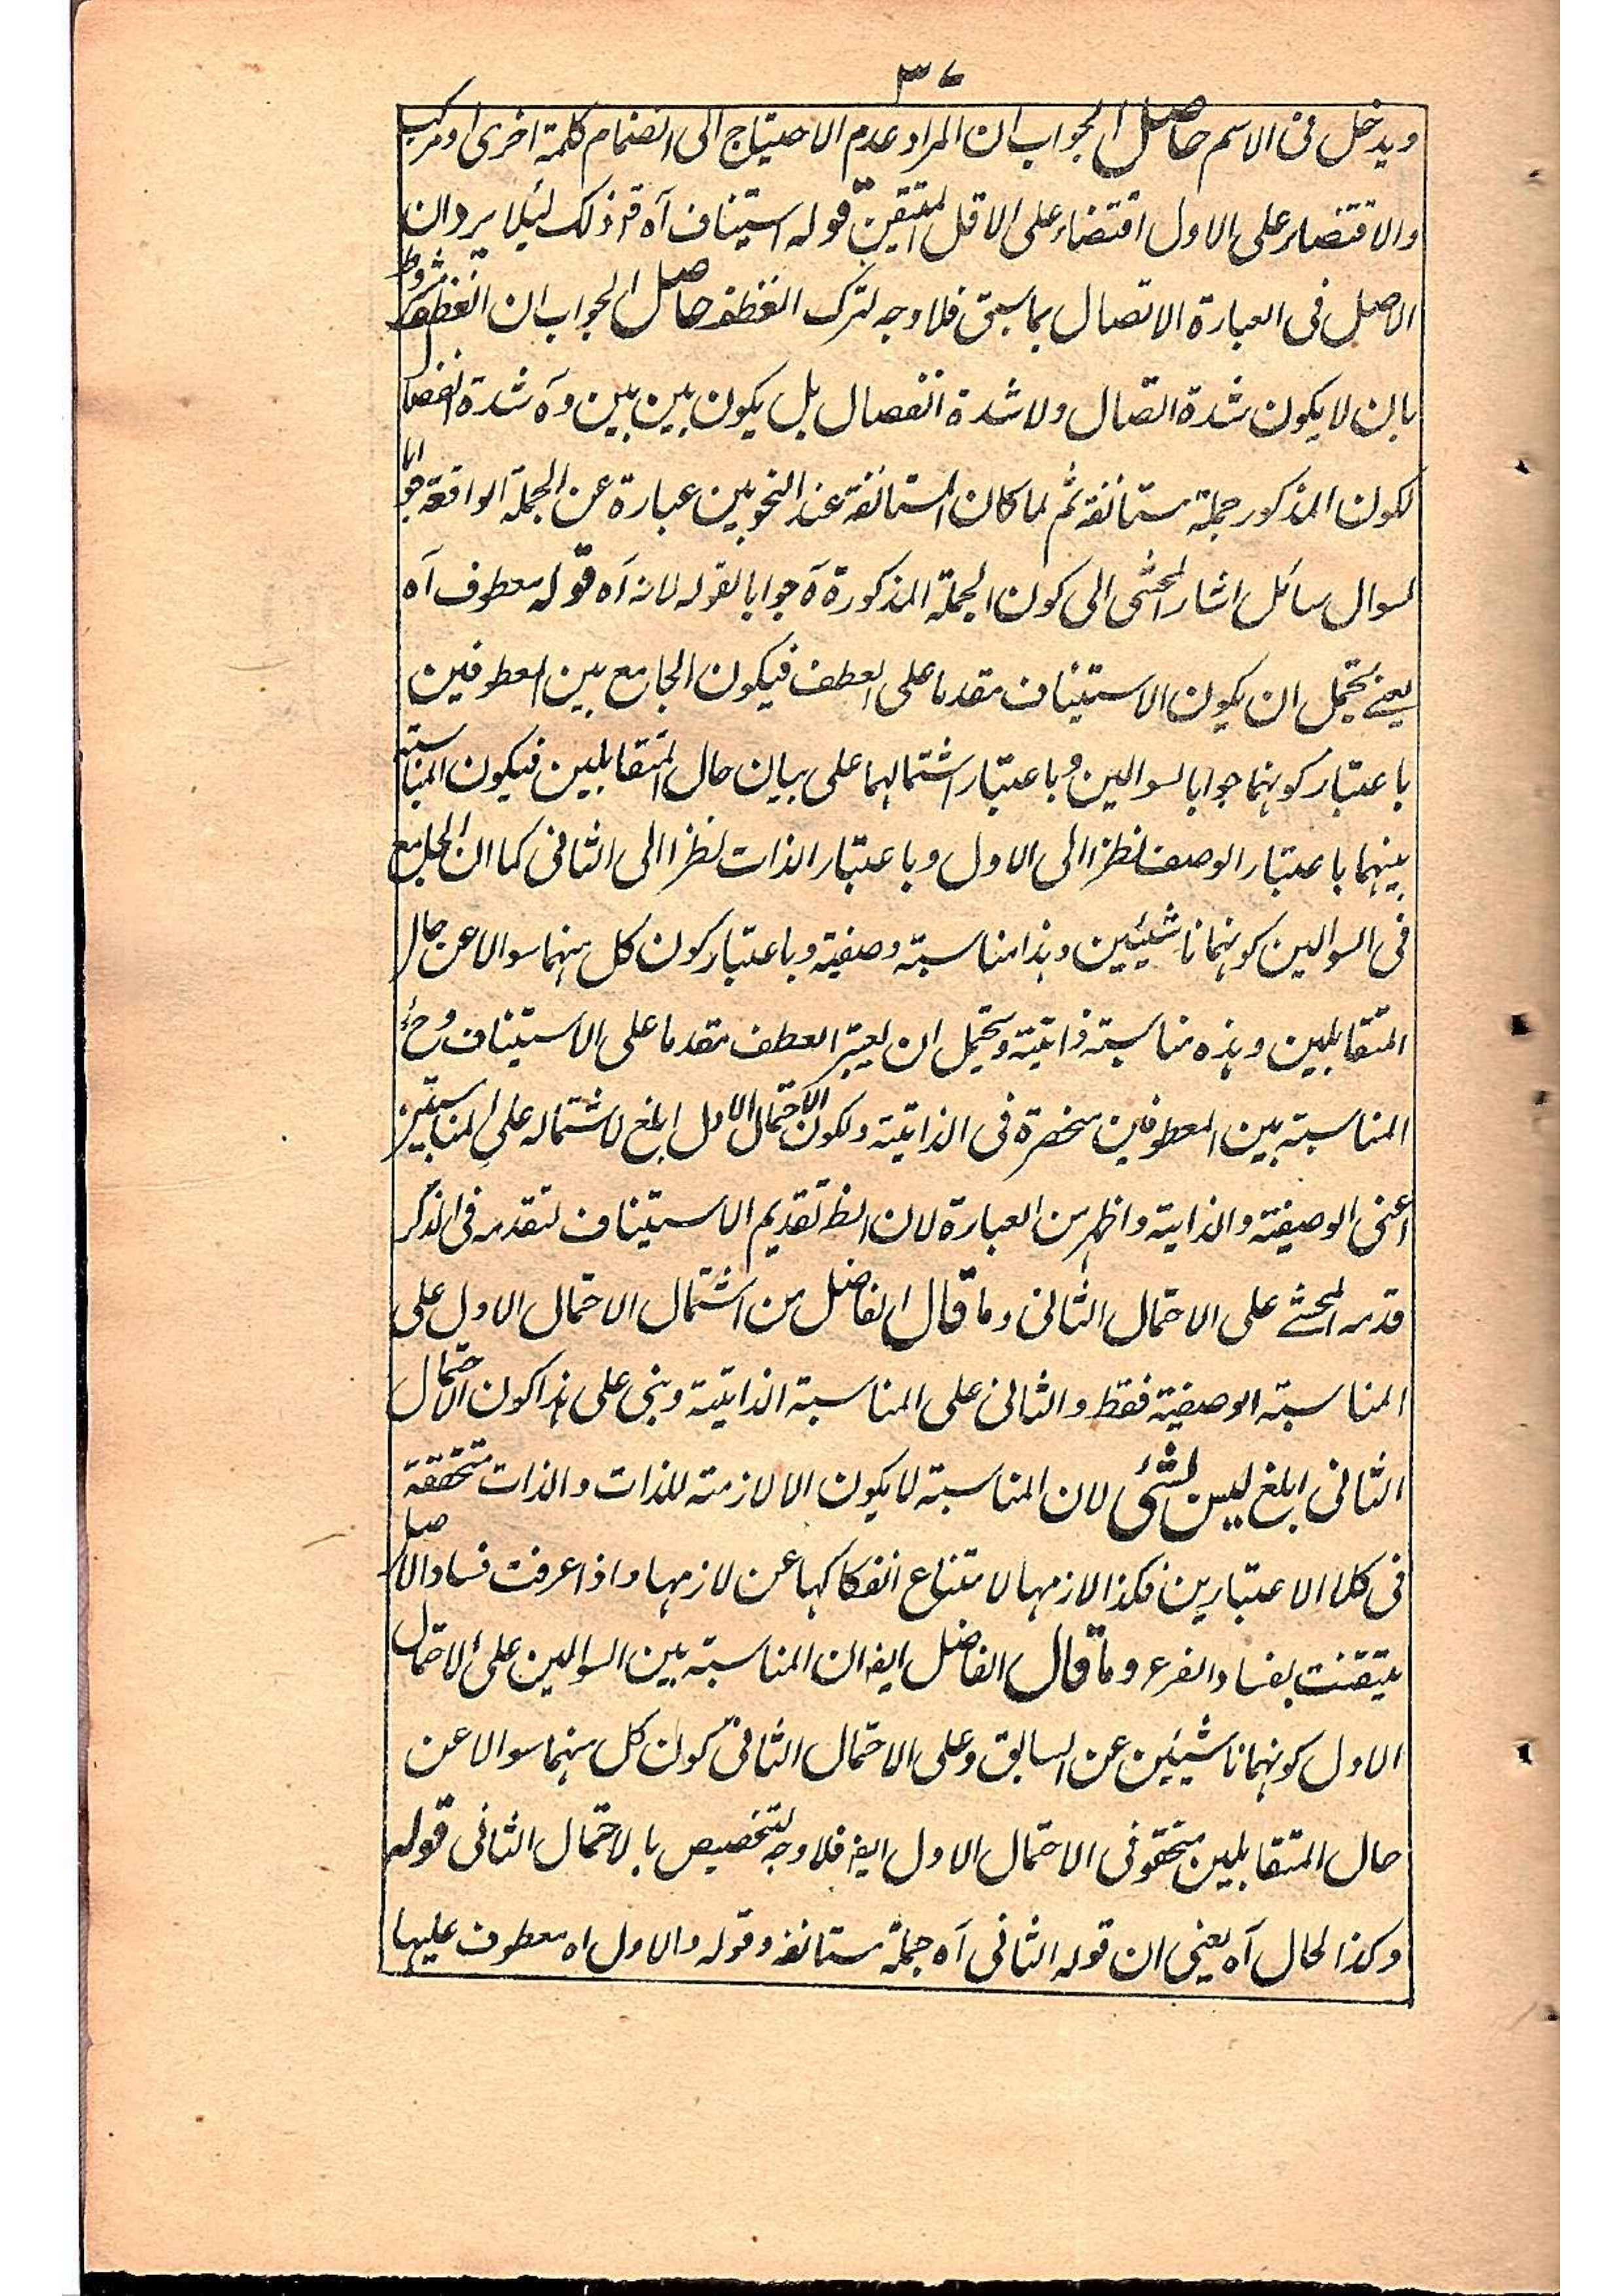 ٣٧
ويدخل فى الاسم حاصل الجواب ان المراد عدم الاحتياج الى انضمام كلمة اخرى او مركب
والاقتضاء على الاول اقتضاء على الاقل المتيقن قوله استيناف آه قد ذلك ليلا يرد ان
الاصل فى العبارة الاتصال بما سبق فلا وجه لترك العطف حاصل الجواب ان العطف مشروط
بان لا يكون شدة اتصال ولا شدة انفصال بل يكون بين بين وه شدة انفصال
لكون المذكور جملة مستانفة ثم لما كان المستانفة عند النحويين عبارة عن الجملة الواقعة جوابا
لسوال سائل اشار المحشى الى كون الجملة المذكورة ه جوابا لقوله لانه آه قوله معطوف آه
يعنے يحتمل ان يكون الاستيناف مقدما على العطف فيكون الجامع بين المعطوفين
باعتبار كونهما جوابا لسوالين وباعتبار اشتمالهما على بيان حال المتقابلين فيكون المناسبة
بينهما باعتبار الوصف نظرا الى الاول وباعتبار الذات نظرا الى الثانى كما ان الجامع
فى السوالين كونهما ناشيئين وهذا مناسبة وصفية وباعتبار كون كل منهما سوالا عن حال
المتقابلين وهذه مناسبة ذاتية ويحتمل ان يعتبر العطف مقدما على الاستيناف وح
المناسبة بين المعطوفين منحصرة فى الذاتية ولكون الاحتمال الاول ابلغ لاشتماله على المناسبتين
اعنى الوصفية والذاتية واظهر من العبارة لان الظ تقديم الاستيناف لتقدمه فى الذكر
قدمه المحشے على الاحتمال الثانى وما قال الفاضل من اشتمال الاحتمال الاول على
المناسبة الوصفية فقط والثانى على المناسبة الذاتية وبنى على هذا كون الاحتمال
الثانى ابلغ ليس بشئ لان المناسبة لا يكون الا لازمة للذات والذات متحققة
فى كلا الاعتبارين فكذا لازمها لامتناع انفكاكها عن لازمها واذا عرفت فساد الاصل
تيقنت بفساد الفرع وما قال الفاضل ايضا ان المناسبة بين السوالين على الاحتمال
الاول كونهما ناشيئين عن السابق وعلى الاحتمال الثانى كون كل منهما سوالا عن
حال المتقابلين متحقق فى الاحتمال الاول ايضا فلا وجه لتخصيص بالاحتمال الثانى قوله
وكذا الحال آه يعنى ان قوله الثانى آه جملة مستانفة وقوله والاول اه معطوف عليها